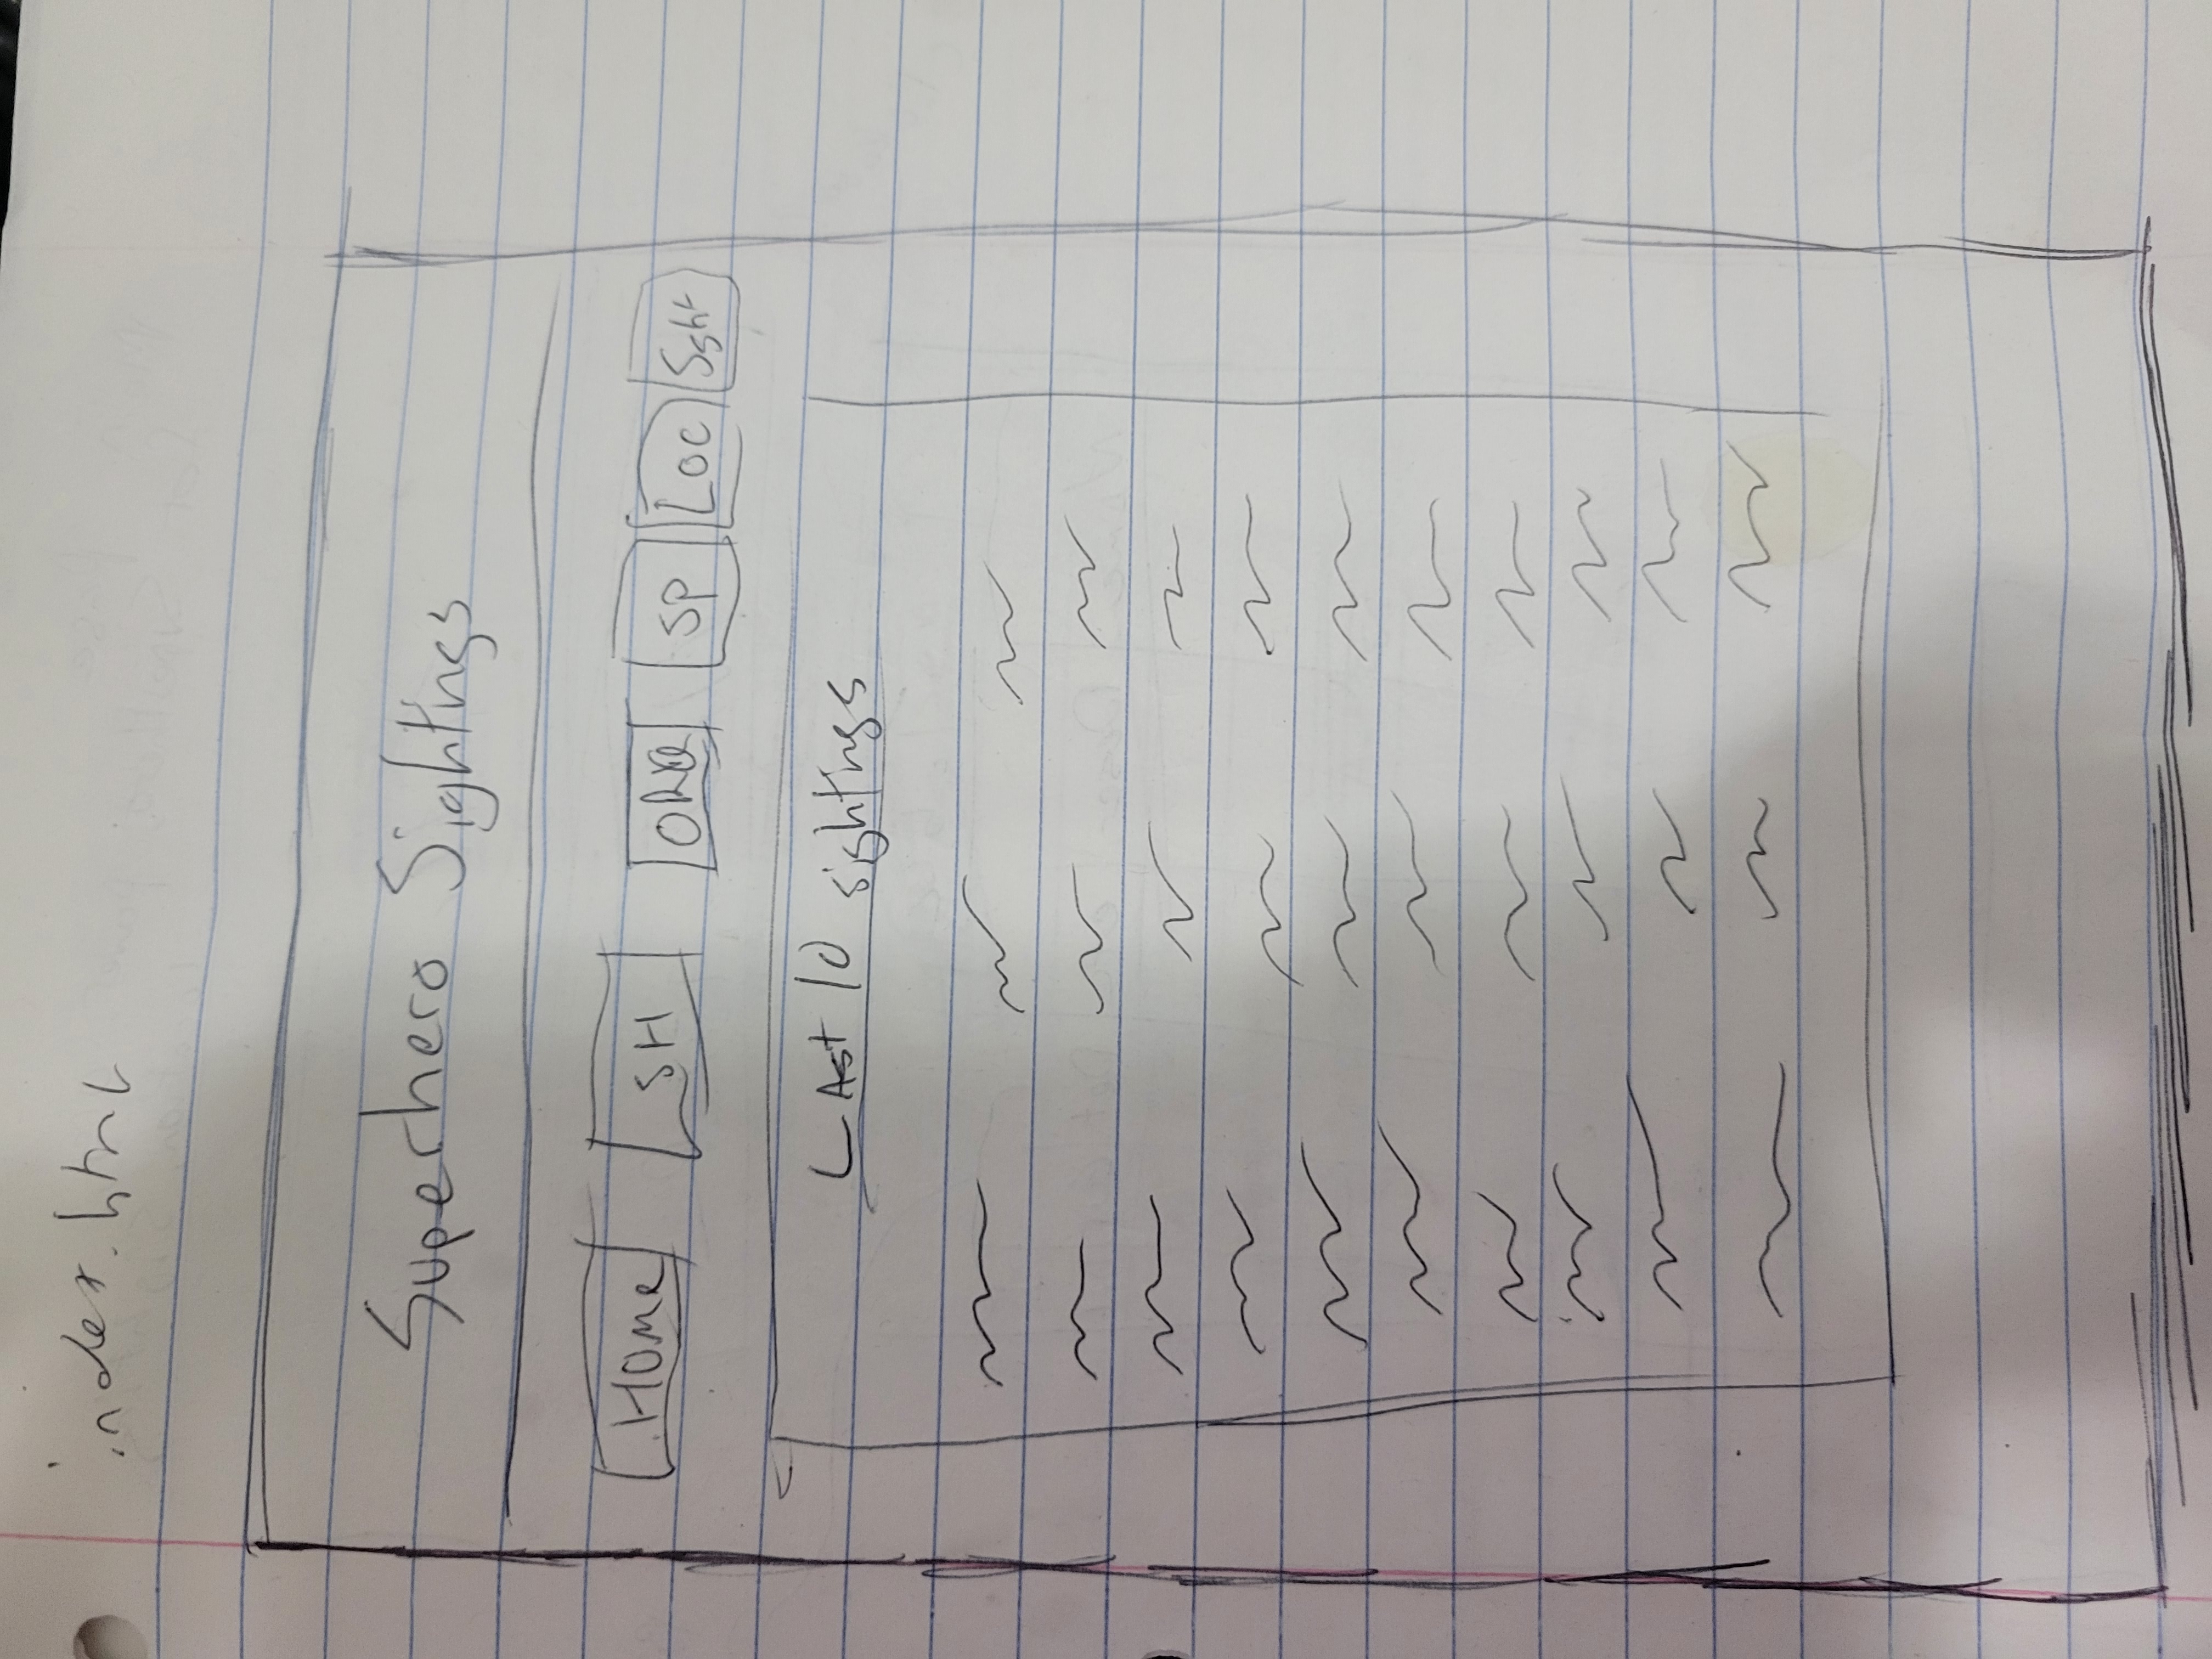 index.html
Superhero Sightings
Home SH ORG SP Loc Sght
Last 10 sightings